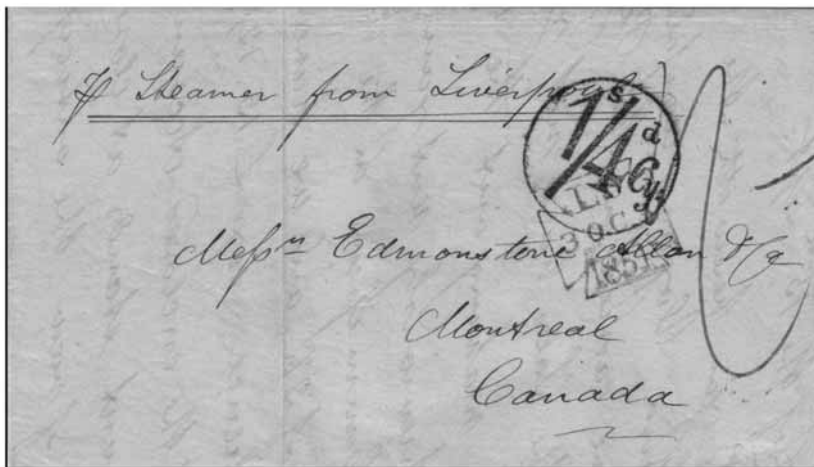 ℘ Steamer from Liverpool
s d
1/4 Cy
3 OC
1851
Messrs Edmonstone Allan & Co
Montreal
Canada